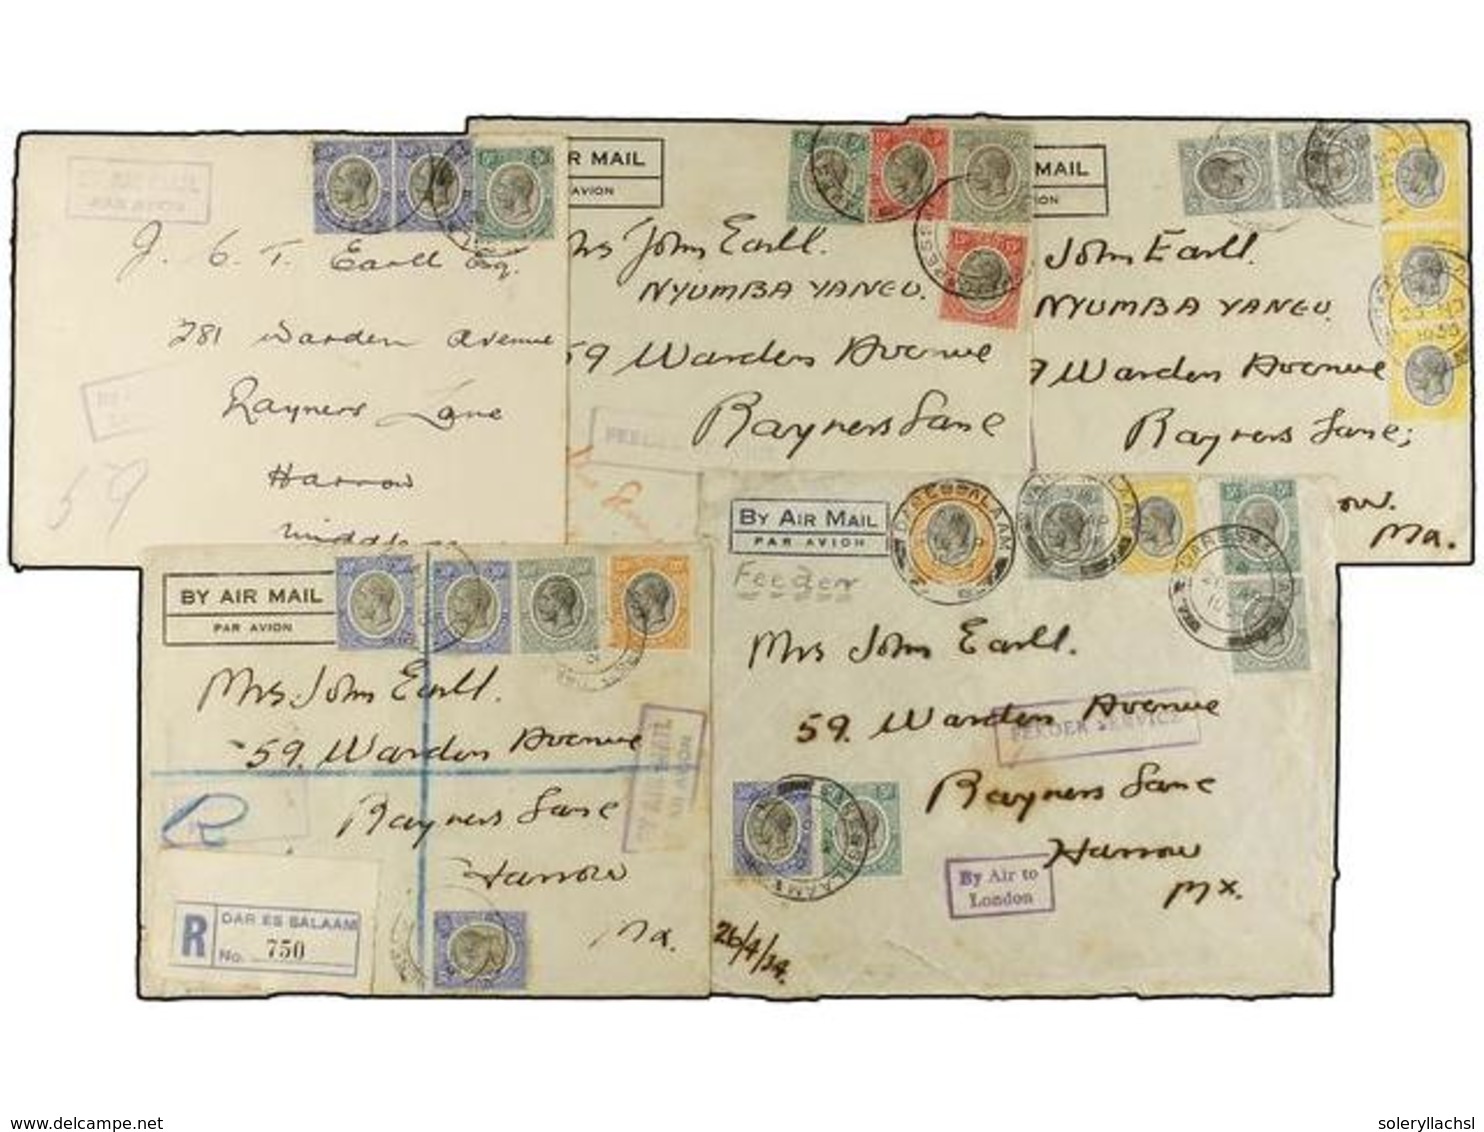 J. C. T. Earll Esq.
281 Warden Avenue
Rayners Lane
Harrow
59
AIR MAIL
AVION
Mrs John Earll.
NYUMBA YANGU.
59 Warden Avenue
Rayners Lane
FEEDER
MAIL
John Earll.
NYUMBA YANGU
Warden Avenue
Rayners Lane;
Mx.
BY AIR MAIL
PAR AVION
Mrs John Earll.
59, Warden Avenue
Rayners Lane
Harrow
Mx.
R
R
DAR ES SALAAM
No. 750
BY AIR MAIL
PAR AVION
BY AIR MAIL
PAR AVION
Feeder
DAR ES SALAAM
Mrs John Earll.
59. Warden Avenue
FEEDER SERVICE
Rayners Lane
Harrow
Mx.
By Air to
London
26/4/34.
delcampe.net
soleryllachsl